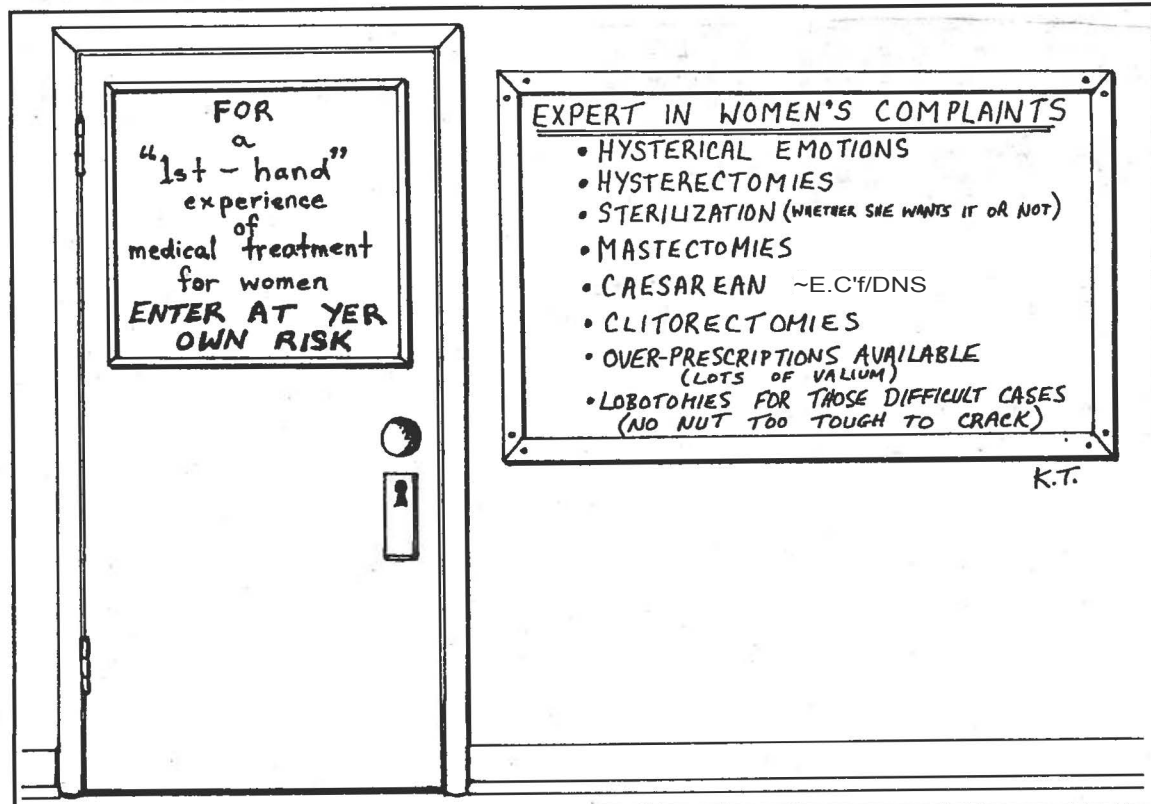 FOR
a
"1st - hand"
experience
of
medical treatment
for women
ENTER AT YER
OWN RISK
EXPERT IN WOMEN'S COMPLAINTS
• HYSTERICAL EMOTIONS
• HYSTERECTOMIES
• STERILIZATION (WHETHER SHE WANTS IT OR NOT)
• MASTECTOMIES
• CAESAREAN ~E.C'f/DNS
• CLITORECTOMIES
• OVER-PRESCRIPTIONS AVAILABLE
(LOTS OF VALIUM)
• LOBOTOMIES FOR THOSE DIFFICULT CASES
(NO NUT TOO TOUGH TO CRACK)
K.T.